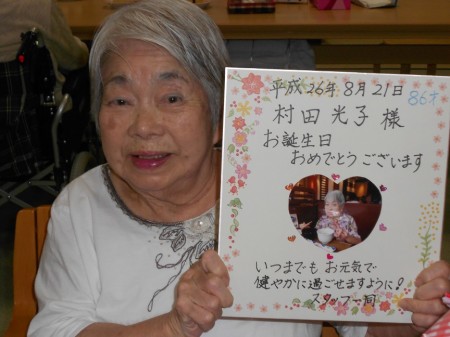 平成26年8月21日
86才
村田光子様
お誕生日
おめでとうございます
いつまでもお元気で
健やかに過ごせますように!
スタッフ一同